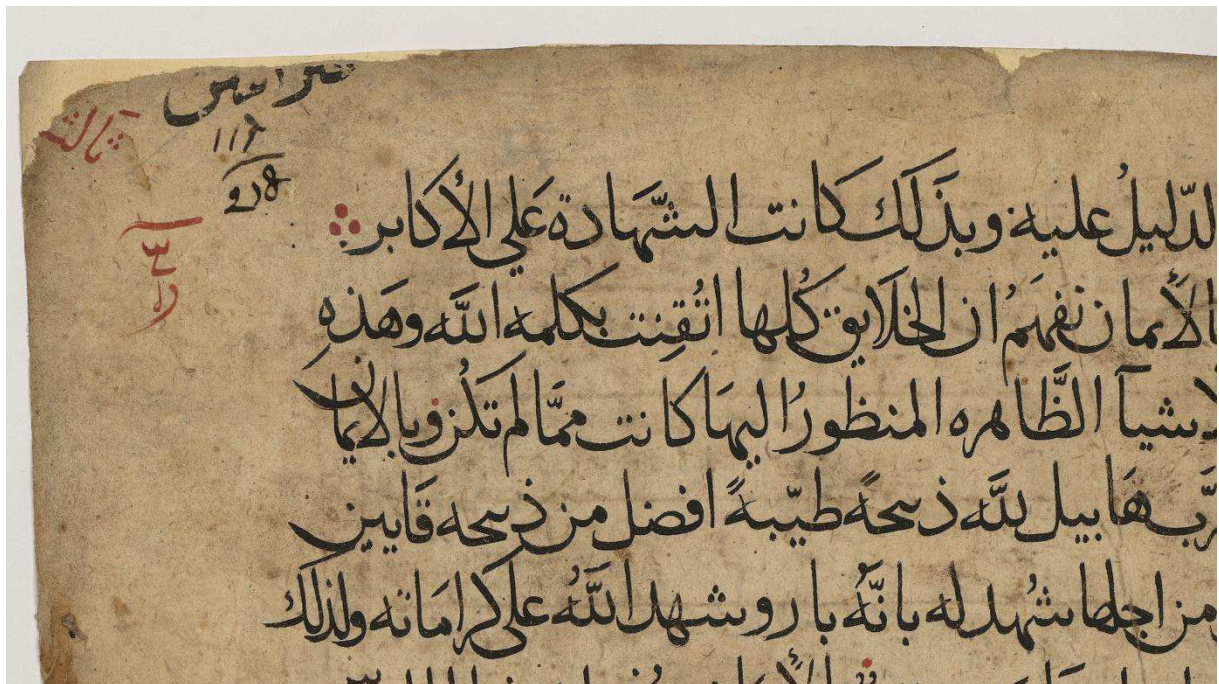 ثالث
١١٤
الدّليلُ عليه وبذَلك كانت الشّهادة عَلي الأكابر
الأيمان نفهَمُ ان الخلايق كُلها اتُقِنت بكلمه اللَّه وهَذهِ
الاشيآ الظَّاهره المنظورُ اليهَا كانت ممَّا لم تكُن وبالايمان
قرَّب هَابيل للَّه ذبيحهً طيّبهً افضل من ذبيحه قَايين
ومن اجلها شُهد له بانَّهُ بار وشهد اللَّهُ على كراماته ولذلك